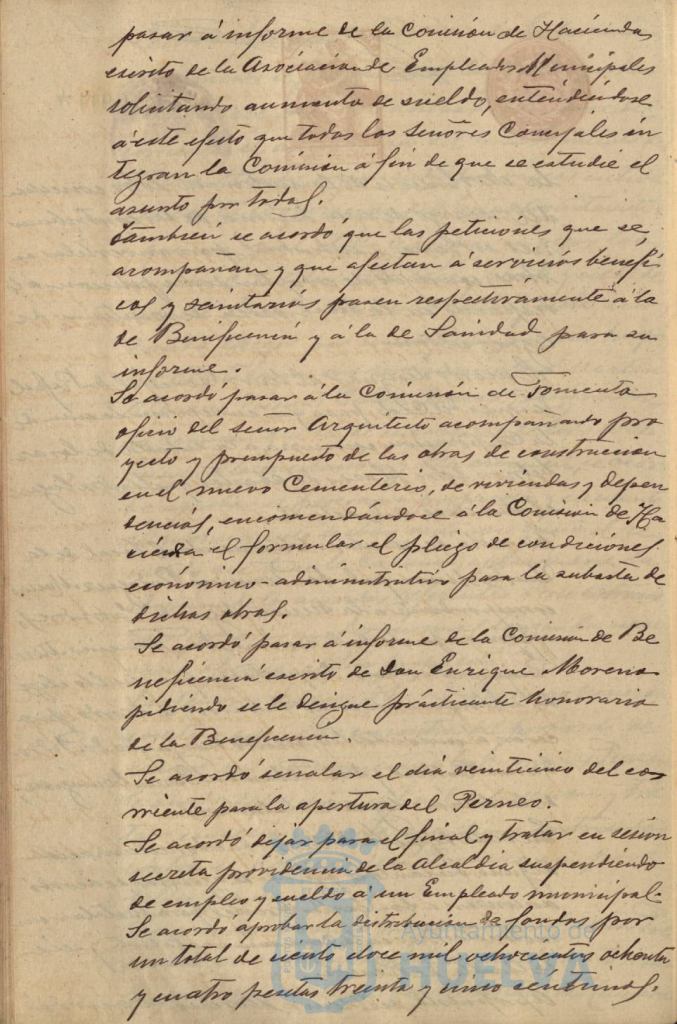 pasar á informe de la Comisión de Hacienda
escrito de la Asociación de Empleados Municipales
solicitando aumento de sueldo, entendiéndose
á este efecto que todos los señores Concejales in
tegran la Comisión á fin de que se estudie el
asunto por todos.
También se acordó que las peticiones que se
acompañan y que afectan á servicios benefi
cos y sanitarios pasen respectivamente á la
de Beneficencia y á la de Sanidad para su
informe.
Se acordó pasar á la Comisión de Fomento
oficio del señor Arquitecto acompañando pro
yecto y presupuesto de las obras de construccion
en el nuevo Cementerio, de viviendas y depen
dencias, encomendándose á la Comisión de Ha
cienda el formular el pliego de condiciones
económico-administrativo para la subasta de
dichas obras.
Se acordó pasar á informe de la Comisión de Be
neficencia escrito de Don Enrique Moreno
pidiendo se le designe practicante honorario
de la Beneficencia.
Se acordó señalar el día veinticinco del co
rriente para la apertura del Perneo.
Se acordó dejar para el final y tratar en sesión
secreta providencia de la Alcaldia suspendiendo
de empleo y sueldo á un Empleado municipal.
Se acordó aprobar la distribucion de fondos por
un total de ciento doce mil ochocientas ochenta
y cuatro pesetas treinta y cinco céntimos.
Ayuntamiento de
HUELVA